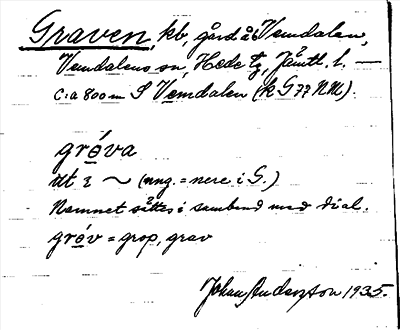 Graven, kb, gård åb Vemdalen,
Vemdalens sn, Hede tg, Jämtl. l. —
c:a 800 m S Vemdalen (k G 77 NM).
gróva
ut i ~ (mng. = nere i G.)
Namnet sättes i samband med dial.
gróv = grop, grav
Johan Anderzton 1935.